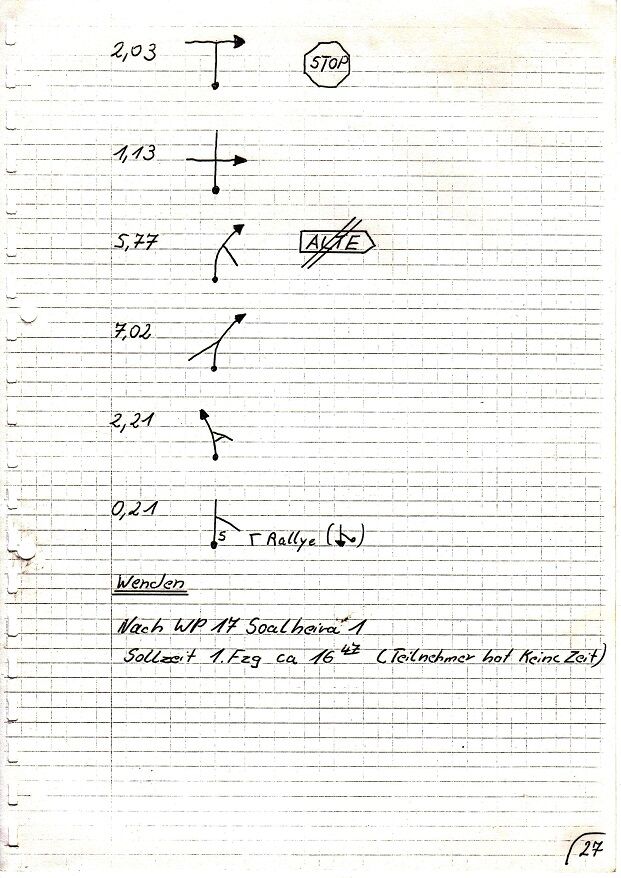 2,03 STOP
1,13
5,77 ALTE
7,02
2,21
0,21
S Γ Rallye ( )
Wenden
Nach WP 17 Soalheira 1
Sollzeit 1. Fzg ca 16 47 (Teilnehmer hat Keine Zeit)
27